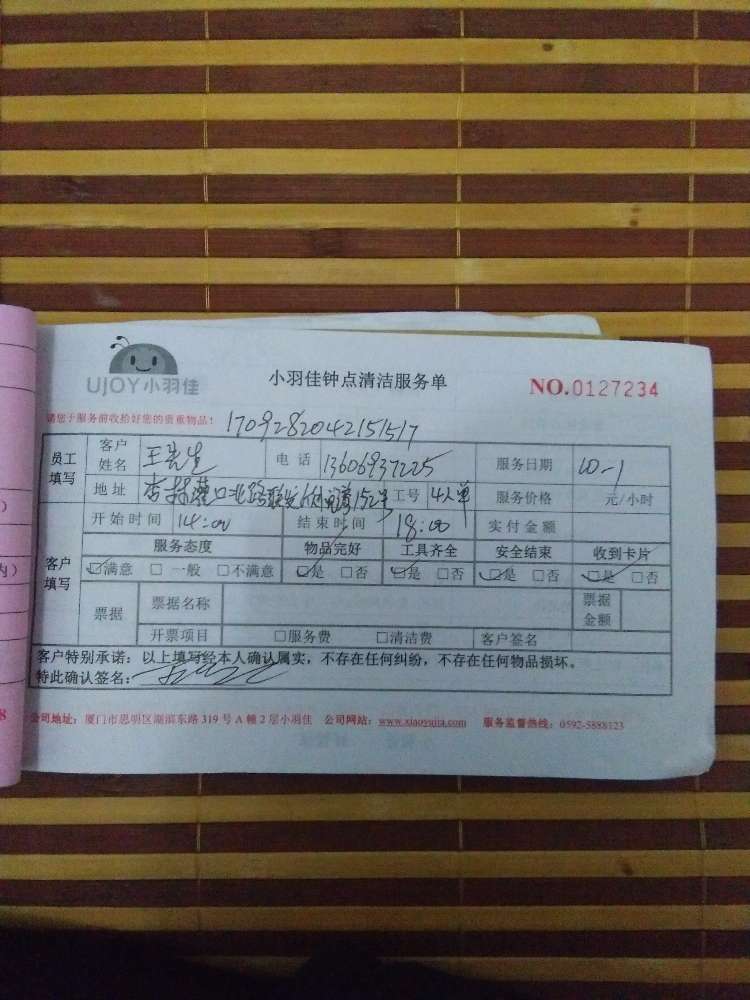 UJOY小羽佳
小羽佳钟点清洁服务单
NO.0127234
请您于服务前收拾好您的贵重物品！ 1709282042151517
员工填写 客户姓名 王先生 电话 13606937225 服务日期 10-1
地址 杏林灌口北路 工号 4人单 服务价格 元/小时
开始时间 14:00 结束时间 18:00 实付金额
客户填写 服务态度 物品完好 工具齐全 安全结束 收到卡片
☑满意 □一般 □不满意 ☑是 □否 ☑是 □否 ☑是 □否 ☑是 □否
票据 票据名称 票据金额
开票项目 □服务费 □清洁费 客户签名
客户特别承诺：以上填写经本人确认属实，不存在任何纠纷，不存在任何物品损坏。
特此确认签名：
公司地址：厦门市思明区湖滨东路 319 号 A 幢 2 层小羽佳 公司网站：www.xiaoyujia.com 服务监督热线：0592-5888123